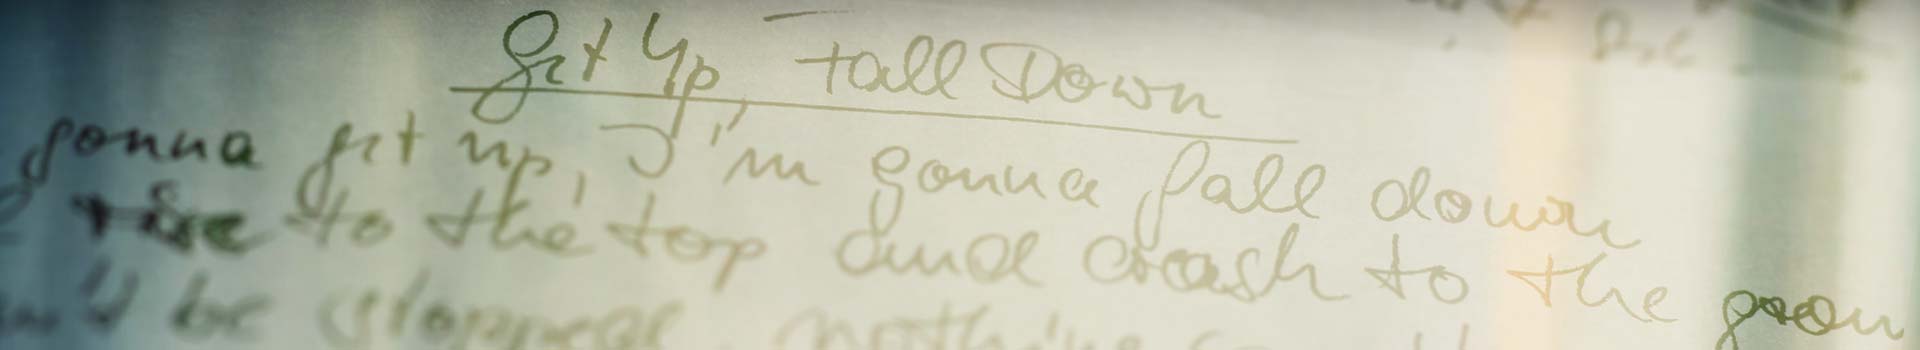 Get Up, Fall Down
gonna get up, I'm gonna fall down
rise to the top and crash to the groun
be stopped, nothing